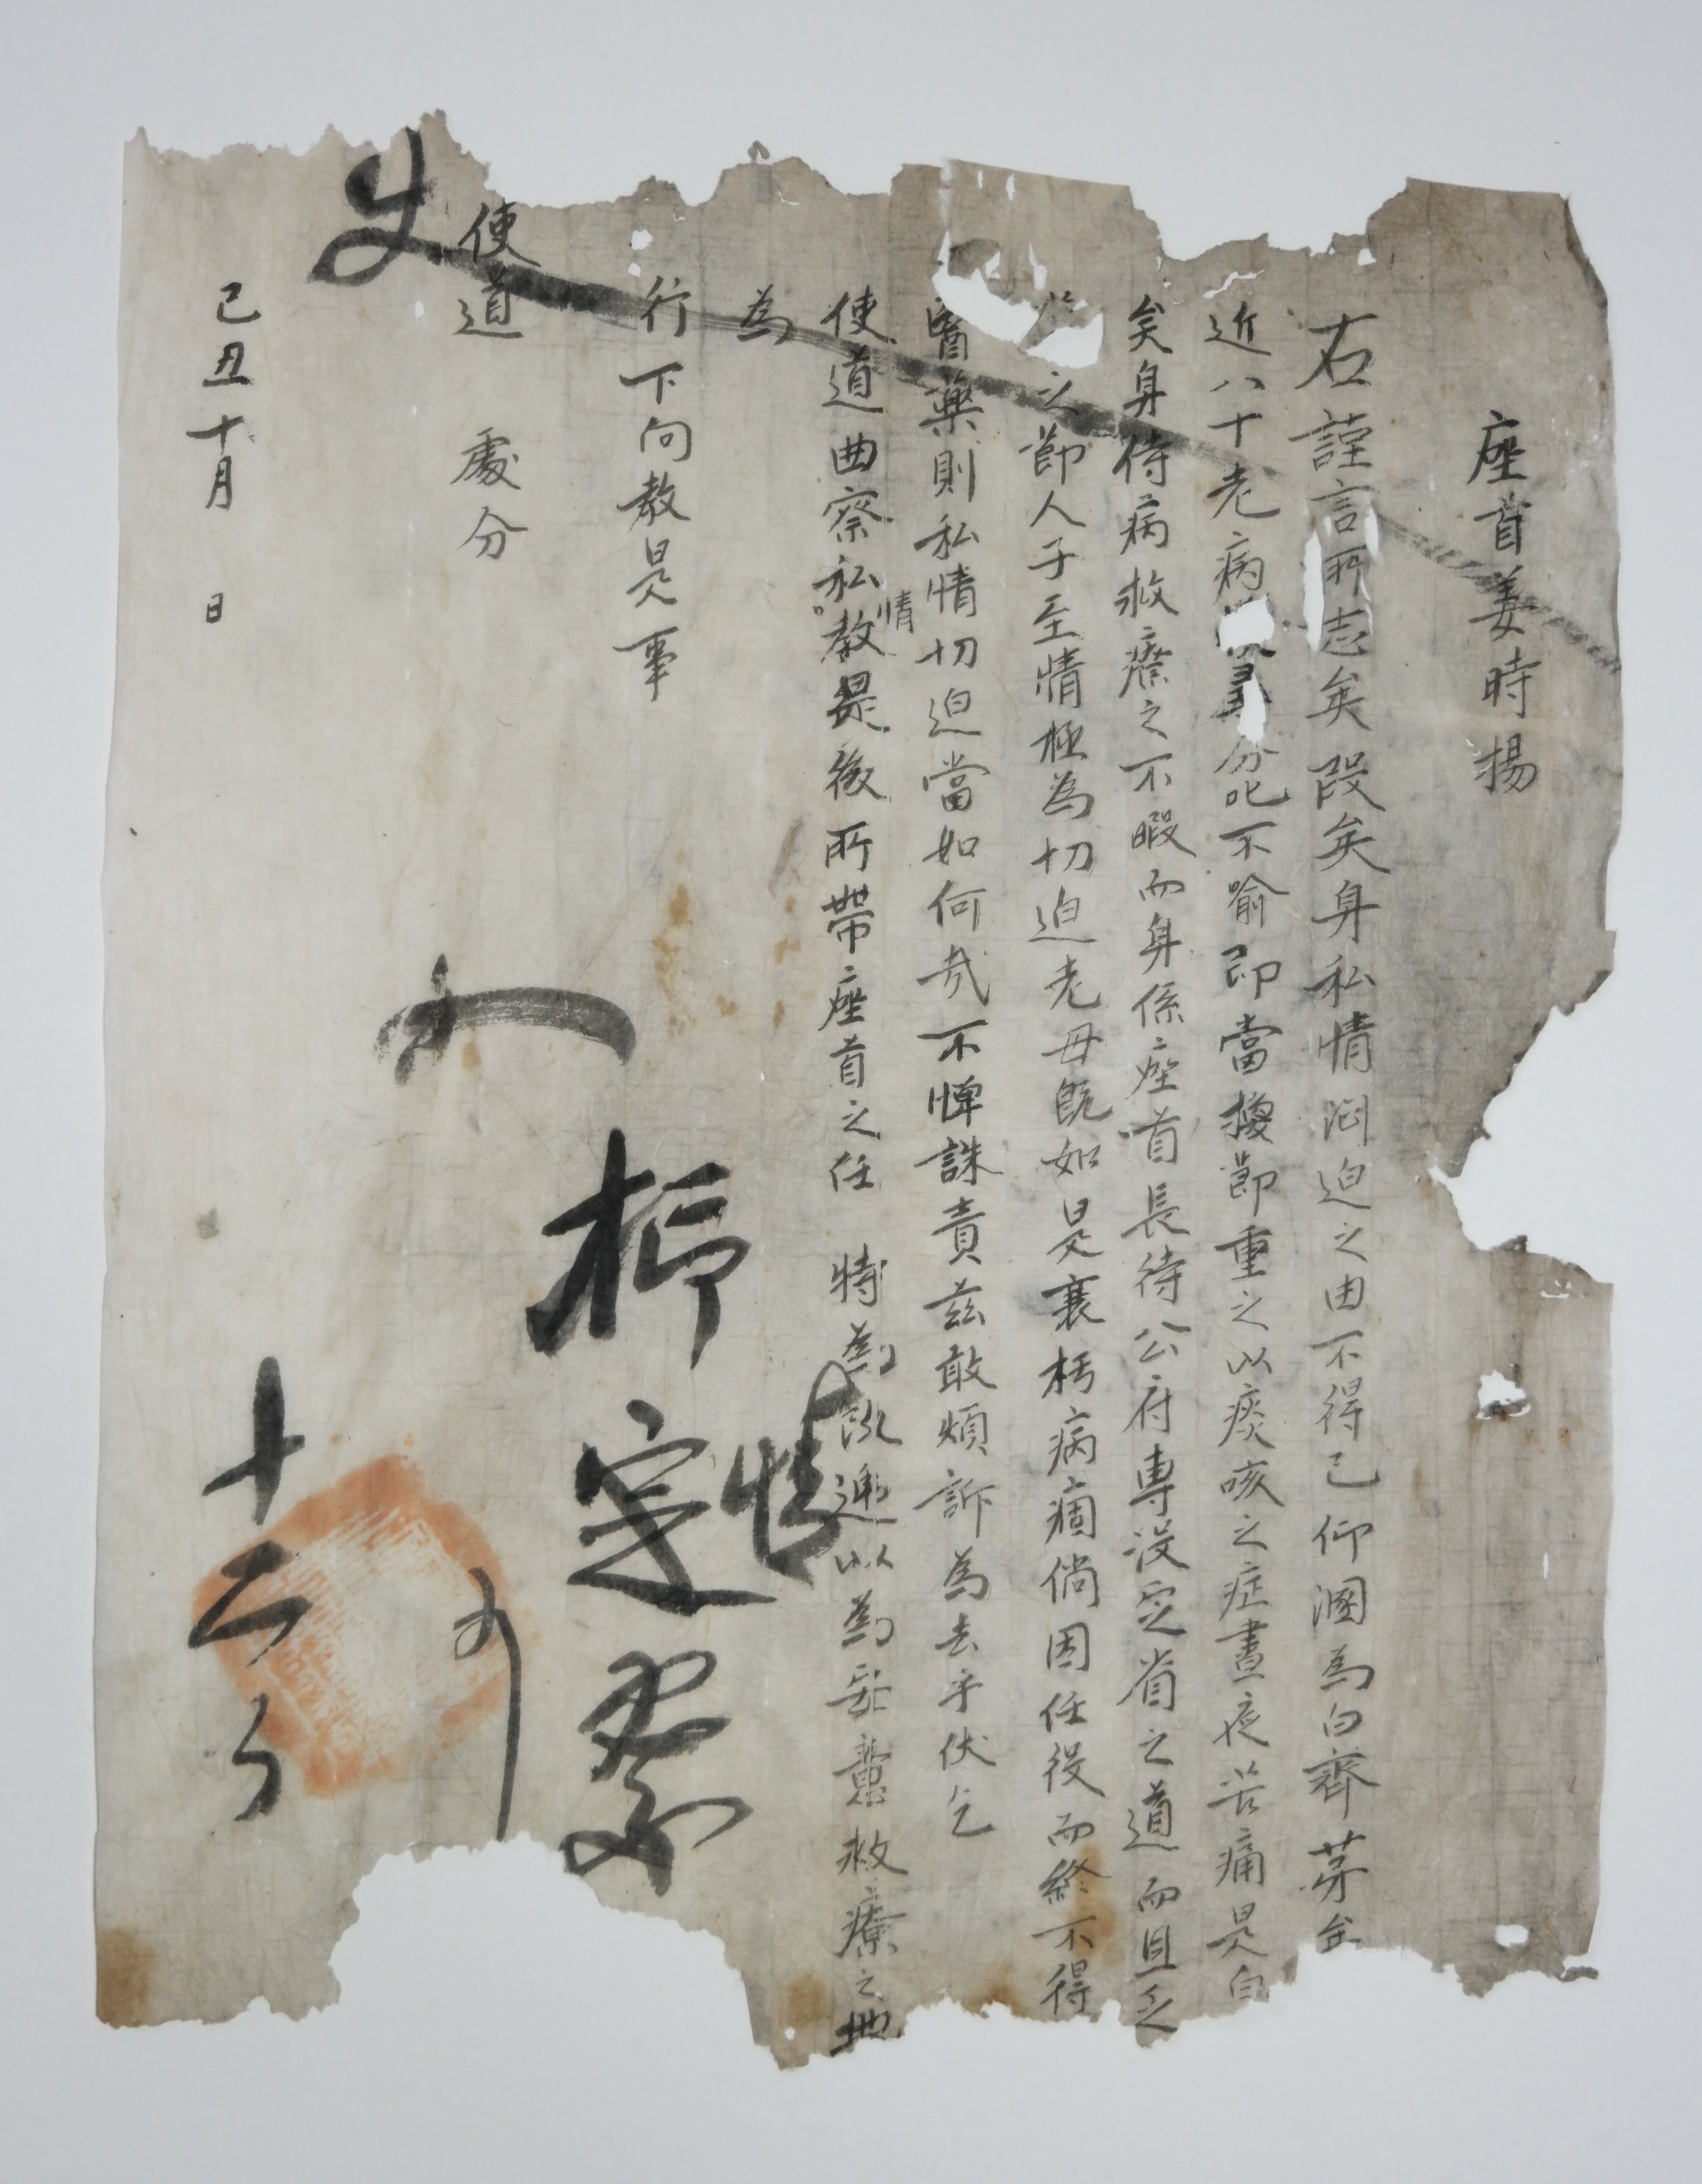 座首姜時揚
右謹言所志矣段矣身私情悶迫之由不得已仰溷爲白齊茅矣
近八十老病分叱不喻卽當換節重之以痰咳之症晝夜苦痛是白
矣身侍病救療之不暇而身係座首長待公府專沒定省之道而且乏
之節人子至情極爲切迫老母旣如是衰朽病痼倘因任役而終不得
醫藥則私情切迫當如何哉不憚誅責玆敢煩訴爲去乎伏乞
使道曲察私情敎是後所帶座首之任 特爲改遞以爲 救療之地
爲
行下向敎是事
使道 處分
己丑十月 日
使
情
十二日